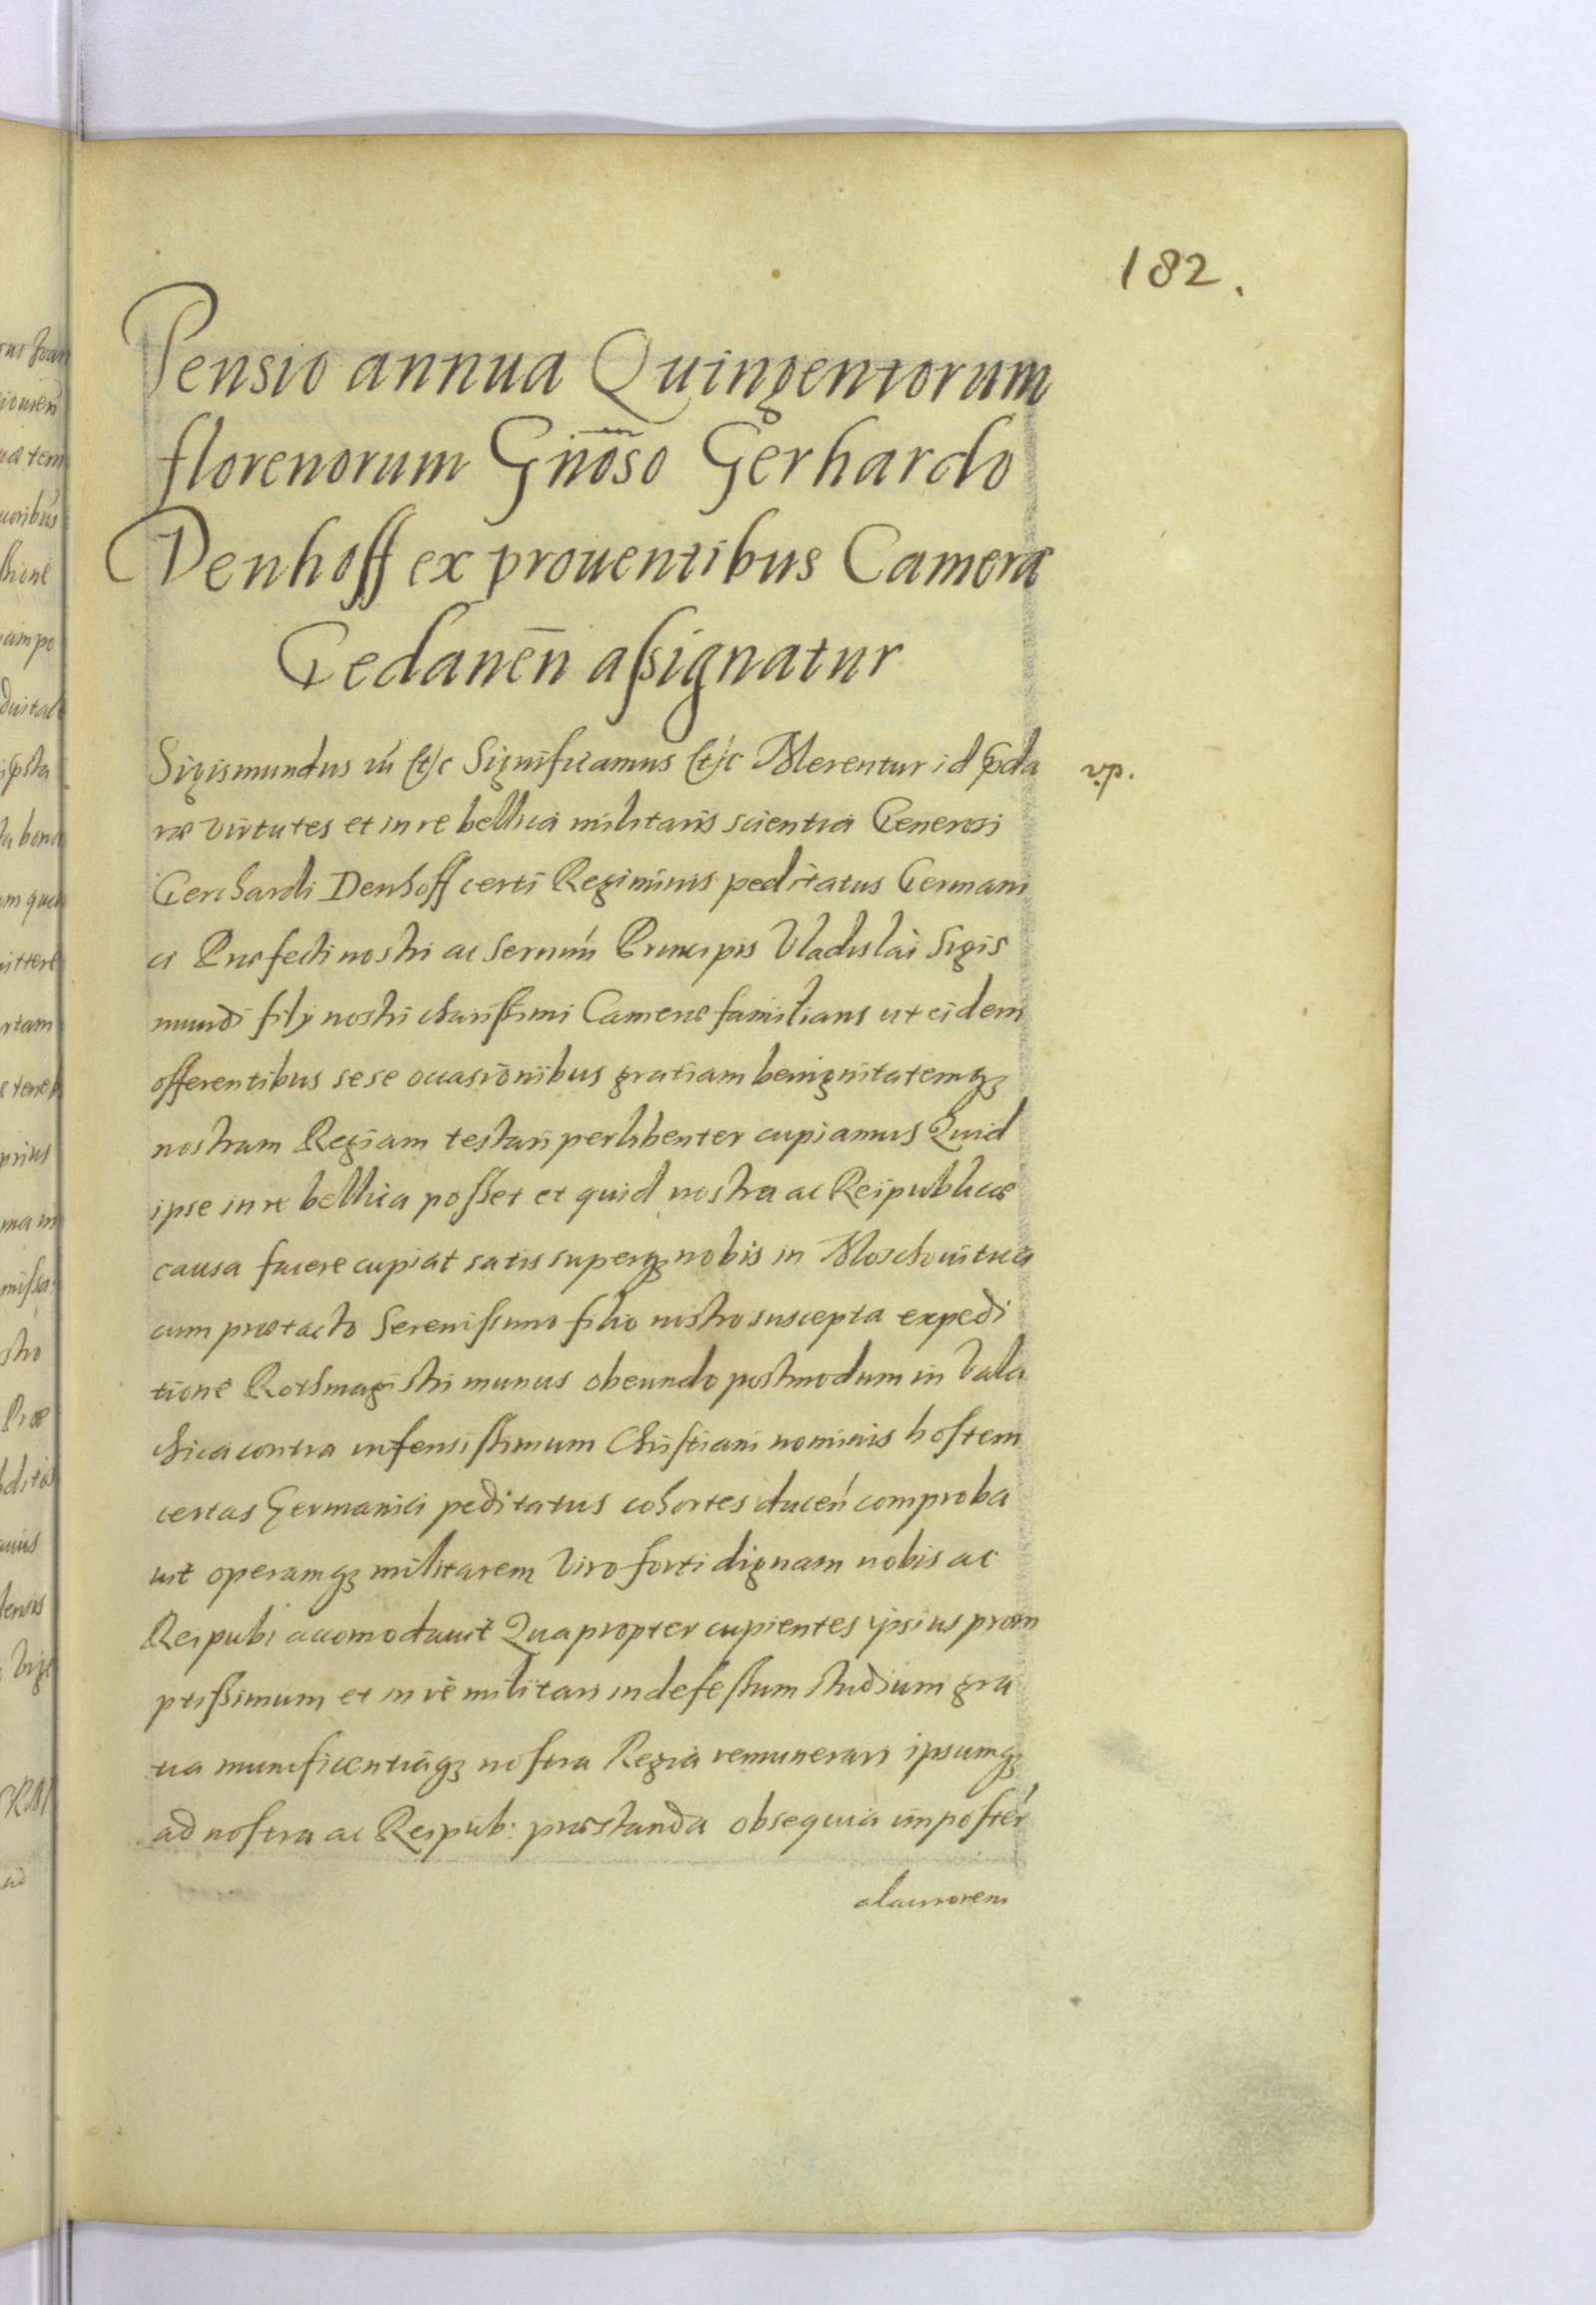 182.
Pensio annua Quingentorum
florenorum Gn̄oso Gerhardo
Denhoff ex prouentibus Cameræ
Gedanēn aſsignatur
Sigismundus etc Significamus etc Merentur id
v.p.
ræ virtutes et in re bellica militaris scientia Generosi
Gerhardi Denhoff certi Regiminis peditatus Germani
ci Præfecti nostri ac Principis Vladislai Sigis
mundi filij nostri chariſsimi Cameræ familiaris ut eidem
offerentibus sese occasionibus gratiam benignitatemqꝫ
nostram Regiam testari perlibenter cupiamus Quid
ipse in re bellica poſset et quid nostra ac Reipublicæ
causa facere cupiat satis superqꝫ nobis in Moschouitica
cum prætacto Sereniſsimo filio nostro suscepta expedi
tione Rothmagistri munus obeundo postmodum in Vala
chica contra infensiſsimum Chriſtiani nominis hoſtem
certas Germanici peditatus cohortes ducen comproba
uit operamqꝫ militarem viro forti dignam nobis ac
Reipubl accomodauit Quapropter cupientes ipsius prom
ptiſsimum et in re militari indefeſsum studium gra
tia munificentiaqꝫ noſtra Regia remunerari ipsumqꝫ
ad noſtra ac Reipub: præstanda obsequia impoſter
alacriorem